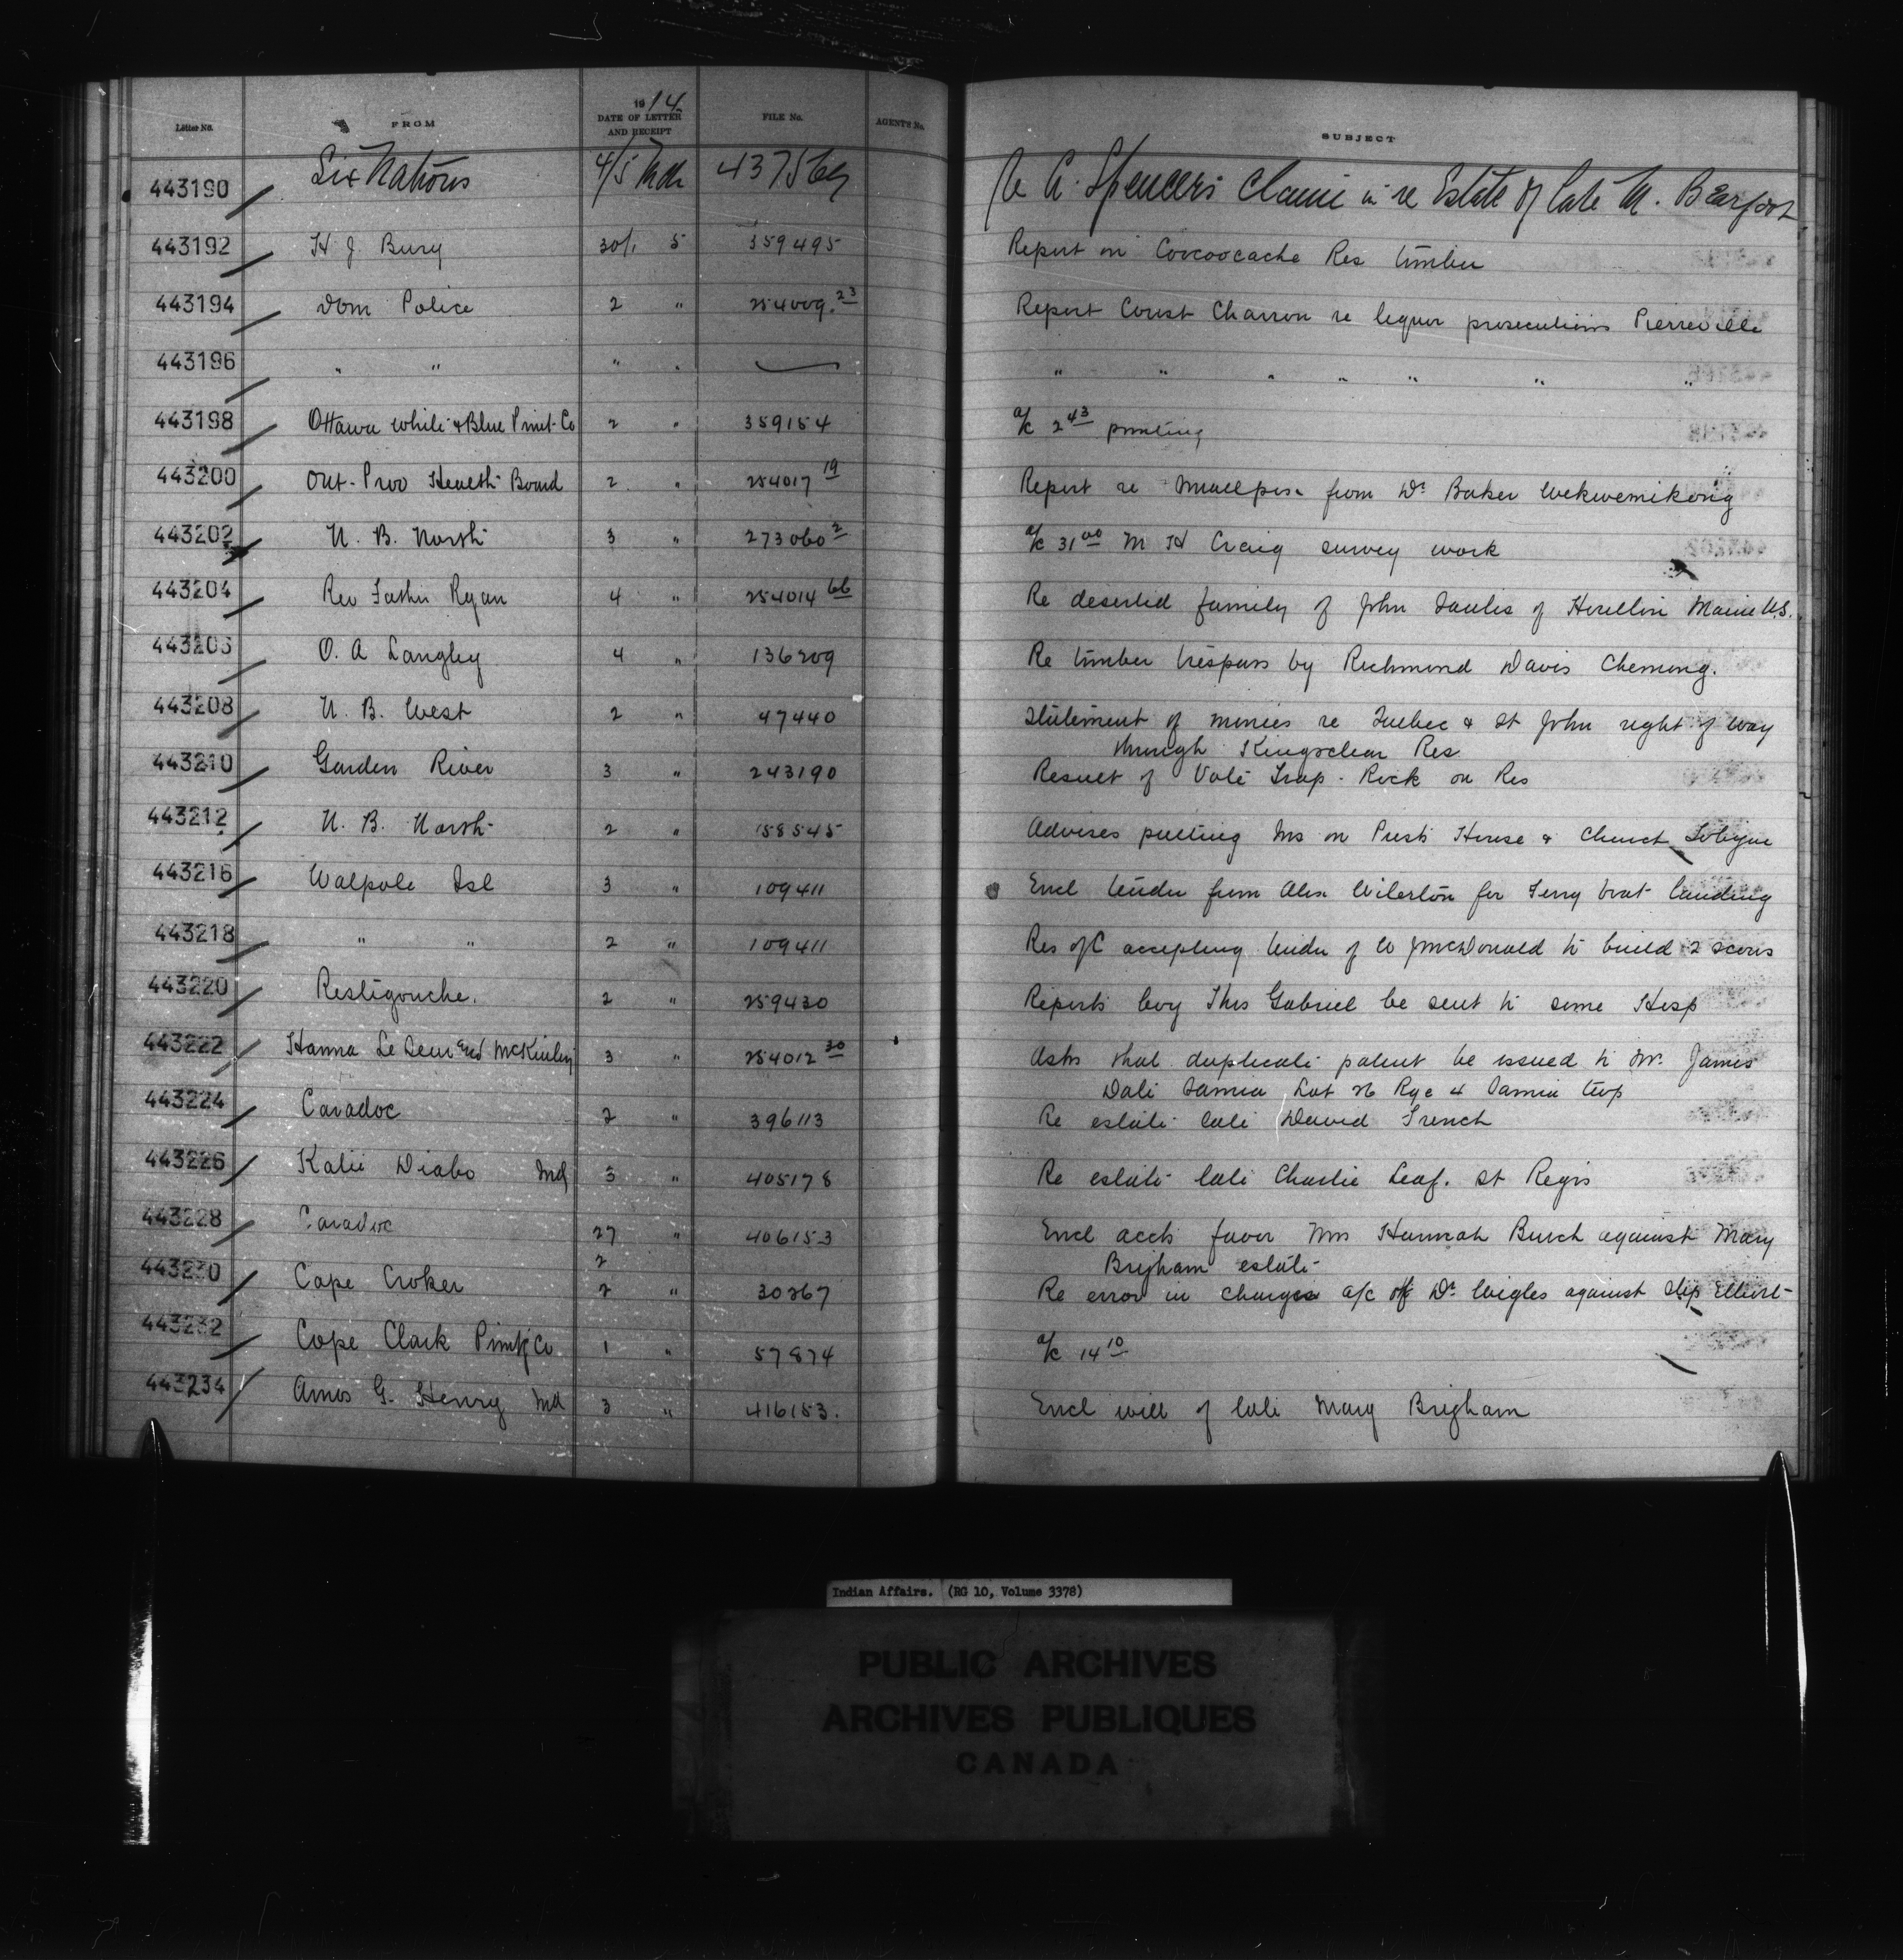 Letter No. FROM 1914 DATE OF LETTER AND RECEIPT FILE No. AGENTS No. SUBJECT
443190 Six Nations 4/5 Mch 437569 Re A. Spencer's claim in re Estate of late M. Bearfoot
443192 H J. Bury 30/1 5 359495 Report on Coocoocache Res timber
443194 Dom Police 2 " 254009.23 Report Const Charron re liquor prosecutions Pierreville
443196 " " " " " " " " " " "
443198 Ottawa White & Blue Print Co 2 " 359154 a/c 2 43 printing
443200 Ont. Prov Health Board 2 " 254017 19 Report re smallpox from Dr Baker Wekwemikong
443202 N. B. North 3 " 273060 2 a/c 31 00 M H Craig survey work
443204 Rev Father Ryan 4 " 254014 66 Re deserted family of John of Maine U.S.
443206 O. A Langley 4 " 136209 Re timber trespass by Richmond Davis Chemong.
443208 N. B. West 2 " 47440 Statement of monies re Quebec & St John right of way
through Kingsclear Res
443210 Garden River 3 " 243190 Result of Vote Trap-Rock on Res
443212 N. B. North 2 " 158545 Advises putting Ins on Priest's House & Church Tobique
443216 Walpole Isl 3 " 109411 Encl tender from Alex for Ferry boat landing
443218 " " 2 " 109411 Res of C accepting tender of W J McDonald to build 2 scows
443220 Restigouche. 2 " 259430 Reports boy Thos Gabriel be sent to some Hosp
443222 Hanna Le Sueur and McKinley 3 " 254012 30 Asks that duplicate patent be issued to Mr. James
Dale Sarnia Lot 26 Rge 4 Sarnia twp
443224 Caradoc 2 " 396113 Re estate late David French
443226 Katie Diabo Ind 3 " 405178 Re estate late Charlie Leaf. St Regis
443228 Caradoc 27 " 406153 Encl accts favor Mrs Hannah Burch against Mary
2 Brigham estate
443230 Cape Croker 2 " 30267 Re error in charges a/c of Dr Wigles against Elliott
443232 Cope Clark Print'g Co 1 " 57874 a/c 14 10
443234 Amos G. Henry Ind 3 " 416153. Encl will of late Mary Brigham
Indian Affairs. (RG 10, Volume 3378)
PUBLIC ARCHIVES
ARCHIVES PUBLIQUES
CANADA